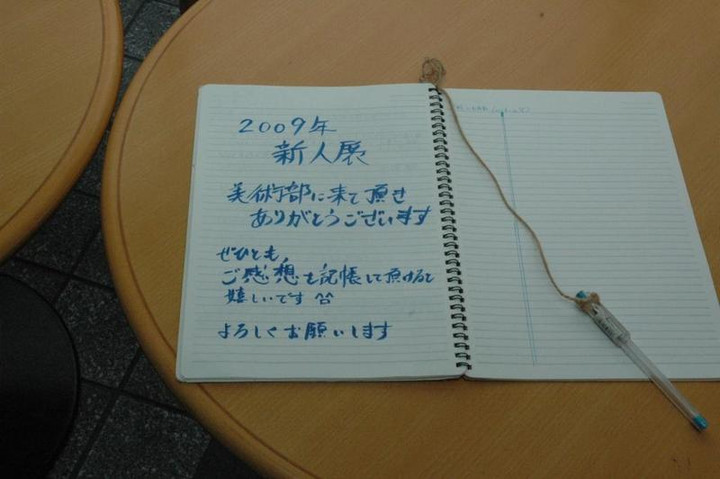 2009年
新人展
美術部に来て頂き
ありがとうございます
ぜひとも、
ご感想を記帳して頂けると
嬉しいです
よろしくお願いします